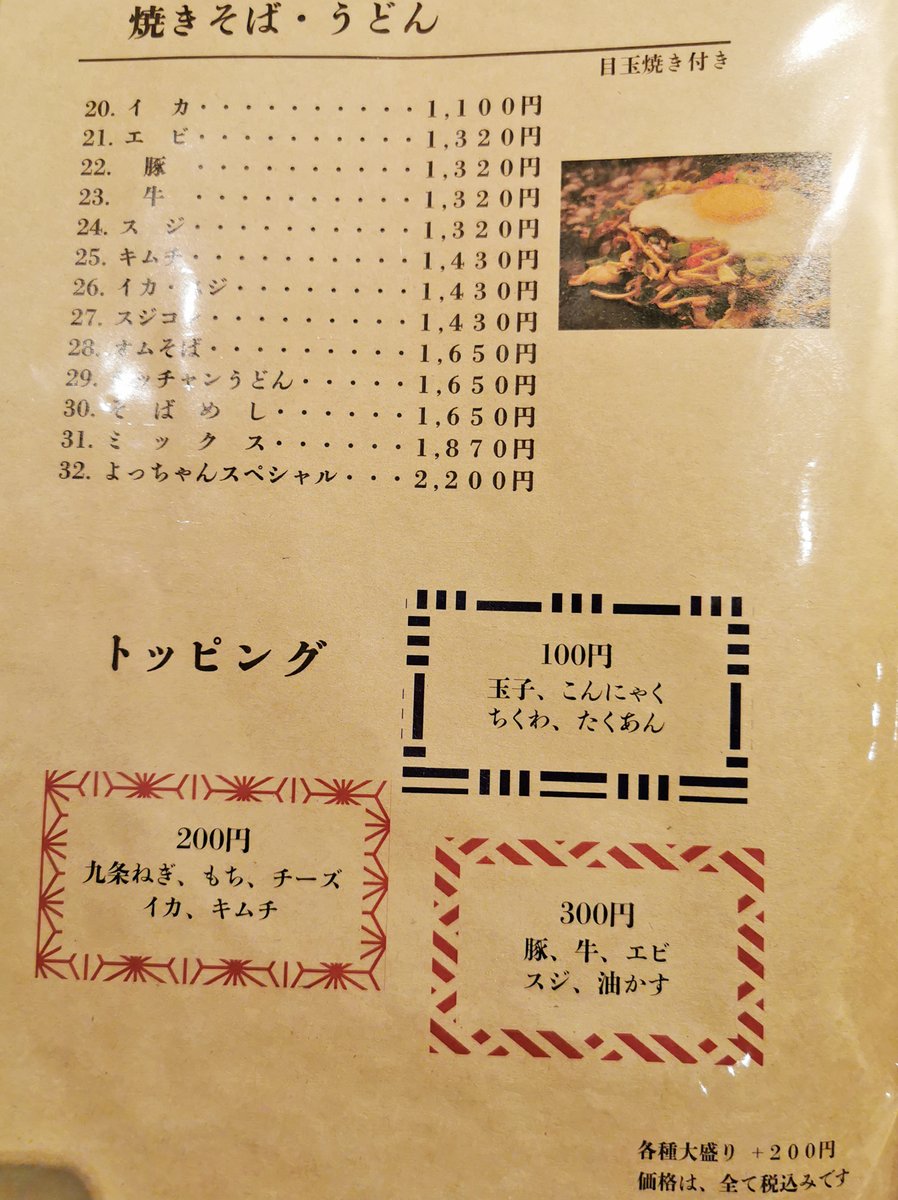 焼きそば・うどん
目玉焼き付き
20. イ カ・・・・・・・・・・1,100円
21. エ ビ・・・・・・・・・・1,320円
22. 豚 ・・・・・・・・・・1,320円
23. 牛 ・・・・・・・・・・1,320円
24. ス ジ・・・・・・・・・・1,320円
25. キムチ・・・・・・・・・・1,430円
26. イカ・スジ・・・・・・・・1,430円
27. スジコン・・・・・・・・・1,430円
28. オムそば・・・・・・・・・1,650円
29. ッチャンうどん・・・・・1,650円
30. そ ば め し・・・・・・1,650円
31. ミ ッ ク ス・・・・・・1,870円
32. よっちゃんスペシャル・・・2,200円
トッピング
100円
玉子、こんにゃく
ちくわ、たくあん
200円
九条ねぎ、もち、チーズ
イカ、キムチ
300円
豚、牛、エビ
スジ、油かす
各種大盛り +200円
価格は、全て税込みです